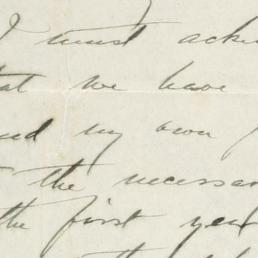 I must ackn
that we have
and my own
the necessar
the first year